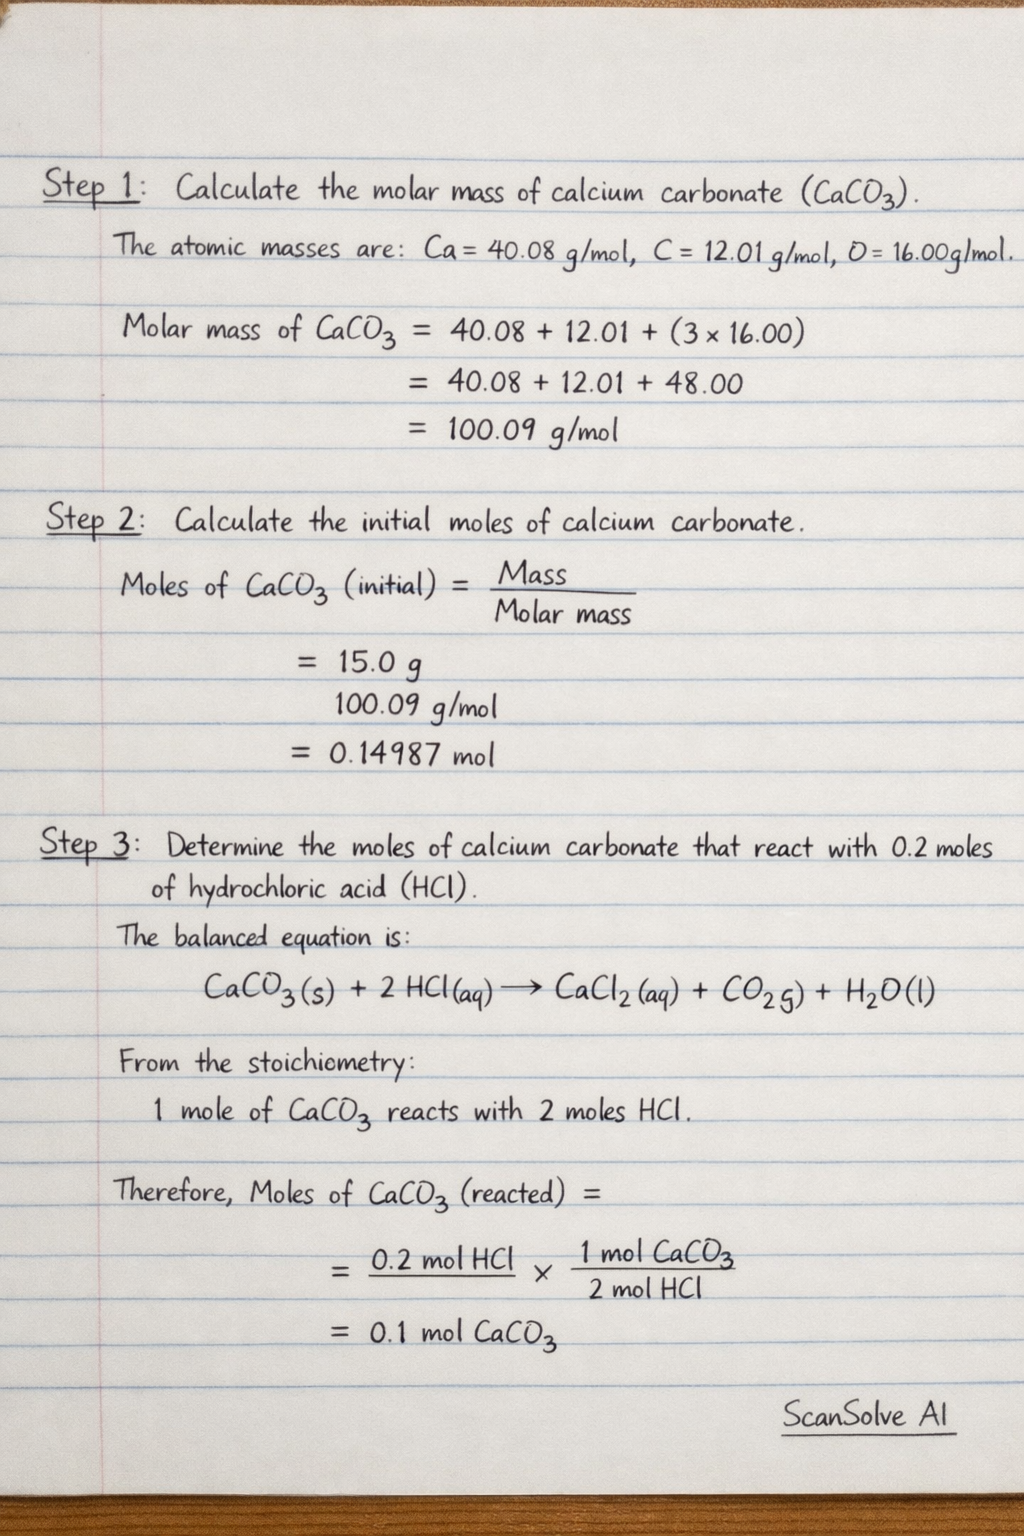 Step 1: Calculate the molar mass of calcium carbonate (CaCO₃).
The atomic masses are: Ca = 40.08 g/mol, C = 12.01 g/mol, O = 16.00g/mol.
Molar mass of CaCO₃ = 40.08 + 12.01 + (3 × 16.00)
= 40.08 + 12.01 + 48.00
= 100.09 g/mol
Step 2: Calculate the initial moles of calcium carbonate.
Moles of CaCO₃ (initial) = Mass
Molar mass
= 15.0 g
100.09 g/mol
= 0.14987 mol
Step 3: Determine the moles of calcium carbonate that react with 0.2 moles
of hydrochloric acid (HCl).
The balanced equation is:
CaCO₃(s) + 2 HCl(aq) → CaCl₂(aq) + CO₂g) + H₂O(l)
From the stoichiometry:
1 mole of CaCO₃ reacts with 2 moles HCl.
Therefore, Moles of CaCO₃ (reacted) =
= 0.2 mol HCl × 1 mol CaCO₃
2 mol HCl
= 0.1 mol CaCO₃
ScanSolve AI